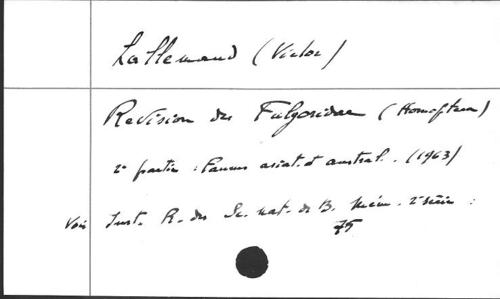 Lallemand (Victor)
Revision des Fulgoridae (Homoptera)
2e partie : Faune asiat. et austral. (1963)
Voir Inst. R. des Sc. nat. de B. Mém. 2e série :
75